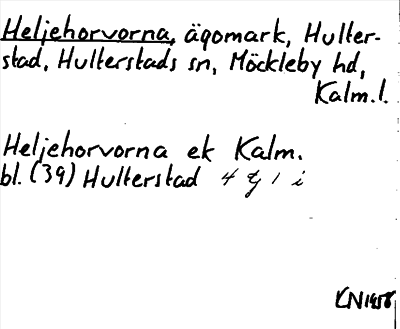 Heljehorvorna, ägomark, Hulter-
stad, Hulterstads sn, Möckleby hd,
Kalm.l.
Heljehorvorna ek Kalm.
bl. (39) Hulterstad 4 tj 1 i
KN1958